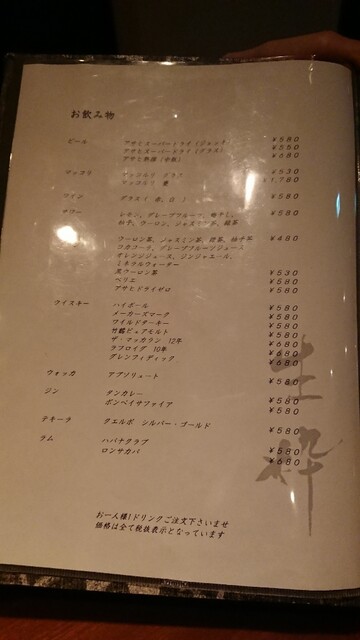 お飲み物
ビール アサヒスーパードライ(ジョッキ) ¥580
アサヒスーパードライ(グラス) ¥550
アサヒ熟撰(中瓶) ¥680
マッコリ マッコルリ グラス ¥530
マッコルリ 壺 ¥1,780
ワイン グラス(赤、白) ¥580
サワー レモン、グレープフルーツ、梅干し、 ¥580
柚子、ウーロン、ジャスミン茶、緑茶
ウーロン茶、ジャスミン茶、緑茶、柚子茶 ¥480
コカコーラ、グレープフルーツジュース
オレンジジュース、ジンジャエール、
ミネラルウォーター
黒ウーロン茶 ¥530
ペリエ ¥580
アサヒドライゼロ ¥580
ウイスキー ハイボール ¥580
メーカーズマーク ¥580
ワイルドターキー ¥580
竹鶴ピュアモルト ¥580
ザ・マッカラン 12年 ¥680
ラフロイグ 10年 ¥680
グレンフィディック ¥680
ウォッカ アブソリュート ¥580
ジン タンカレー ¥580
ボンベイサファイア ¥580
テキーラ クエルボ シルバー・ゴールド ¥580
ラム ハバナクラブ ¥580
ロンサカパ ¥680
お一人様1ドリンクご注文下さいませ
価格は全て税抜表示となっています